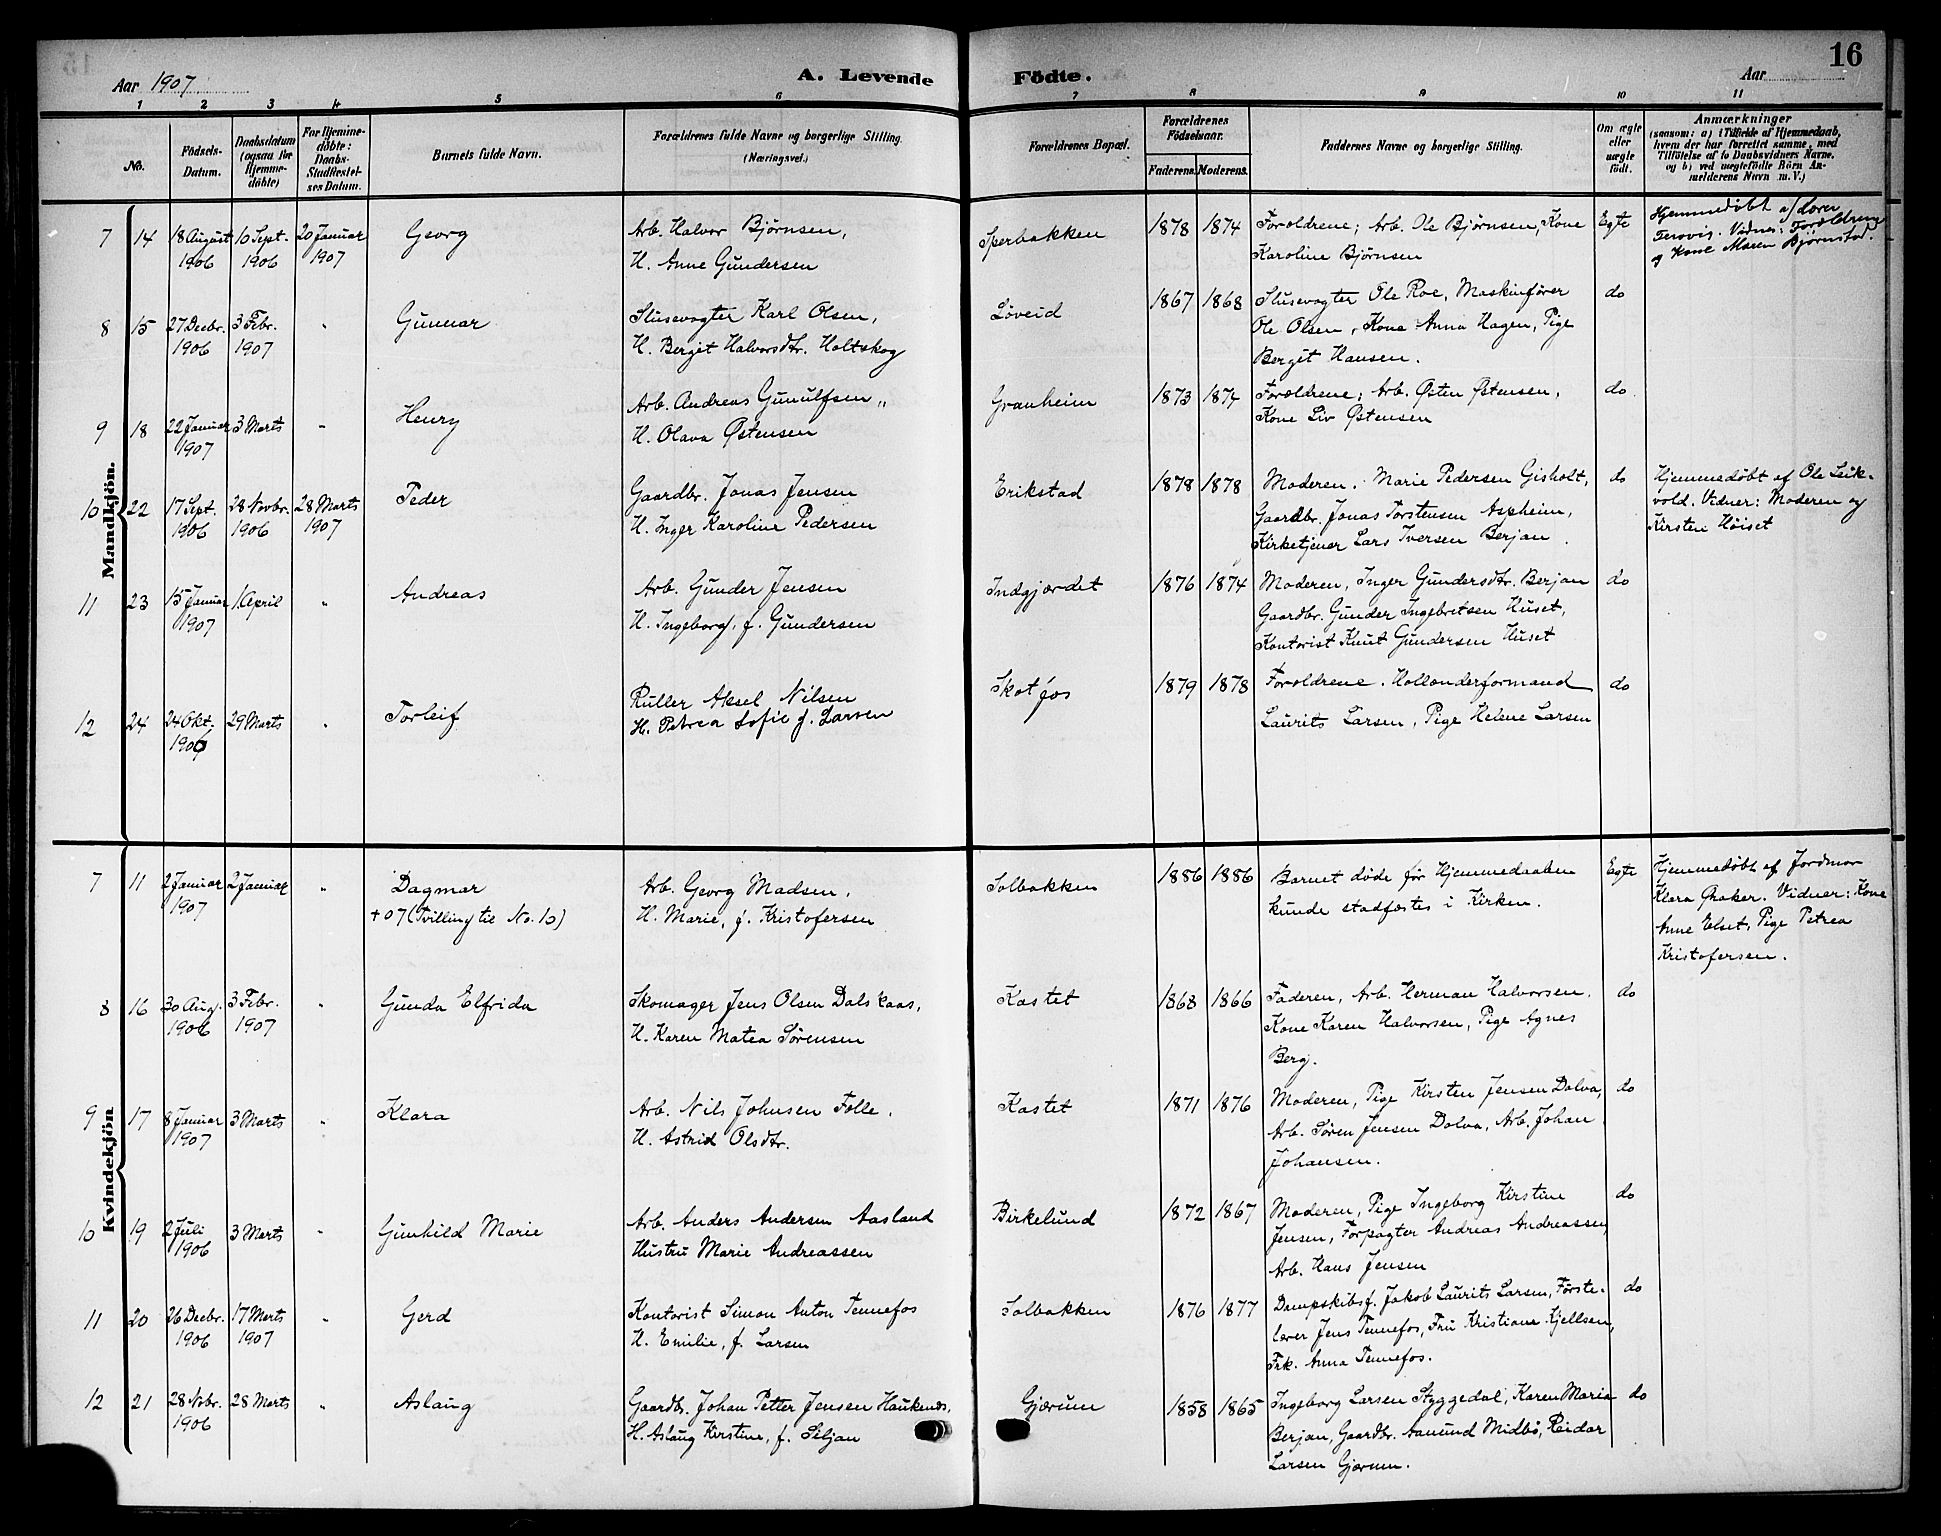 16
Aar 1907
A. Levende Födte.
Aar
1 2 3 4 5 6 7 8 9 10 11
No.
Födsels-
Datum.
Daabsdatum
(ogsaa for
Hjemme-
døbte)
For Hjemme-
døbte:
Daabs-
Stadfæstel-
ses Datum.
Barnets fulde Navn.
Forældrenes fulde Navne og borgerlige Stilling.
(Næringsvei.)
Forældrenes Bopæl.
Forældrenes
Födselsaar.
Faderens. Moderens.
Faddernes Navne og borgerlige Stilling.
Om ægte
eller
uægte
født.
Anmærkninger
(saasom: a) i Tilfælde af Hjemmedaab,
hvem der har forrettet samme, med
Tilföielse af to Daabsvidners Navne,
og b) ved uægtefødte Börn An-
melderens Navn m. V.)
Mandkjön.
7 14 18 August 1906 10 Sept. 1906 20 Januar 1907 Georg
Arb. Halvor Bjørnsen,
H. Anne Gundersen
Sperbakken 1878 1874
Foroldrene; Arb. Ole Bjørnsen, Kone
Karoline Bjørnsen
Egte
Hjemmedøbt af Lærer
Vidner: Foroldrene
og Kone Maren Bjørnstad.
8 15 27 Decbr. 1906 3 Febr. 1907 " Gunnar
Slusevogter Karl Olsen,
H. Bergit Halvorsdtr. Holtskog
Løveid 1867 1868
Slusevogter Ole Roe, Maskinfører
Ole Olsen, Kone Anna Hagen, Pige
Bergit Hansen.
do
9 18 22 Januar 1907 3 Marts " Henry
Arb. Andreas Gunulfsen,
H. Olava Østensen
Granheim 1873 1874
Foroldrene; Arb. Østen Østensen,
Kone Liv Østensen
do
10 22 17 Sept. 1906 28 Novbr. 1906 28 Marts 1907 Peder
Gaardbr. Jonas Jensen
H. Inger Karoline Pedersen
Erikstad 1878 1878
Moderen. Marie Pedersen Gisholt,
Gaardbr. Jonas Torstensen Aspheim,
Kirketjener Lars Iversen Berjan.
do
Hjemmedøbt af Ole Leik-
vold. Vidner: Moderen og
Kirsten Høiset
11 23 15 Januar 1907 1 April " Andreas
Arb. Gunder Jensen
H. Ingeborg, f. Gundersen
Indgjærdet 1876 1874
Moderen, Inger Gundersdtr. Berjan
Gaardbr. Gunder Ingebretsen Huset,
Kontorist Knut Gundersen Huset
do
12 24 24 Okt. 1906 29 Marts " Torleif
Ruller Aksel Nilsen
H. Petrea Sofie f. Larsen
Skotfos 1879 1878
Foroldrene. Hollænderformand
Laurits Larsen, Pige Helene Larsen
do
Kvindekjön
7 11 2 Januar 1907 2 Januar " Dagmar
+ 07 (Tvilling til No. 10)
Arb. Georg Madsen,
H. Marie, f. Kristofersen
Solbakken 1886 1886
Barnet døde før Hjemmedaaben
kunde stadfæstes i Kirken.
Egte
Hjemmedøbt af Jordmor
Klara Vidner: Kone
Anne Elset, Pige Petrea
Kristofersen.
8 16 30 Aug. 1906 3 Febr. 1907 " Gunda Elfrida
Skomager Jens Olsen Dalskaas,
H. Karen Matea Sørensen
Kastet 1868 1866
Faderen, Arb. Herman Halvorsen.
Kone Karen Halvorsen, Pige Agnes
Berg.
do
9 17 8 Januar 1907 3 Marts " Klara
Arb. Nils Johnsen Folle.
H. Astrid Olsdtr.
Kastet 1871 1876
Moderen, Pige Kirsten Jensen Dolva,
Arb. Søren Jensen Dolva, Arb. Johan
Johansen.
do
10 19 2 Juli 1906 3 Marts " Gunhild Marie
Arb. Anders Andersen Aasland
Hustru Marie Andreassen
Birkelund 1872 1867
Moderen, Pige Ingeborg Kirstine
Jensen, Forpagter Andreas Andreassen,
Arb. Hans Jensen
do
11 20 26 Decbr. 1906 17 Marts 1907 " Gerd
Kontorist Simon Anton Tennefos
H. Emilie, f. Larsen
Solbakken 1876 1877
Dampskibsf. Jakob Laurits Larsen, Første-
lærer Jens Tennefos, Fru Kristiane Kjellsen,
Frk. Anna Tennefos.
do
12 21 28 Nvbr. 1906 28 Marts " Aslaug
Gaardbr. Johan Petter Jensen Haukenes,
H. Aslaug Kirstine, f. Siljan
Gjærum 1858 1865
Ingeborg Larsen Styggedal, Karen Maria
Berjan, Gaardbr. Aanund Midbø, Reidar
Larsen Gjærum.
do